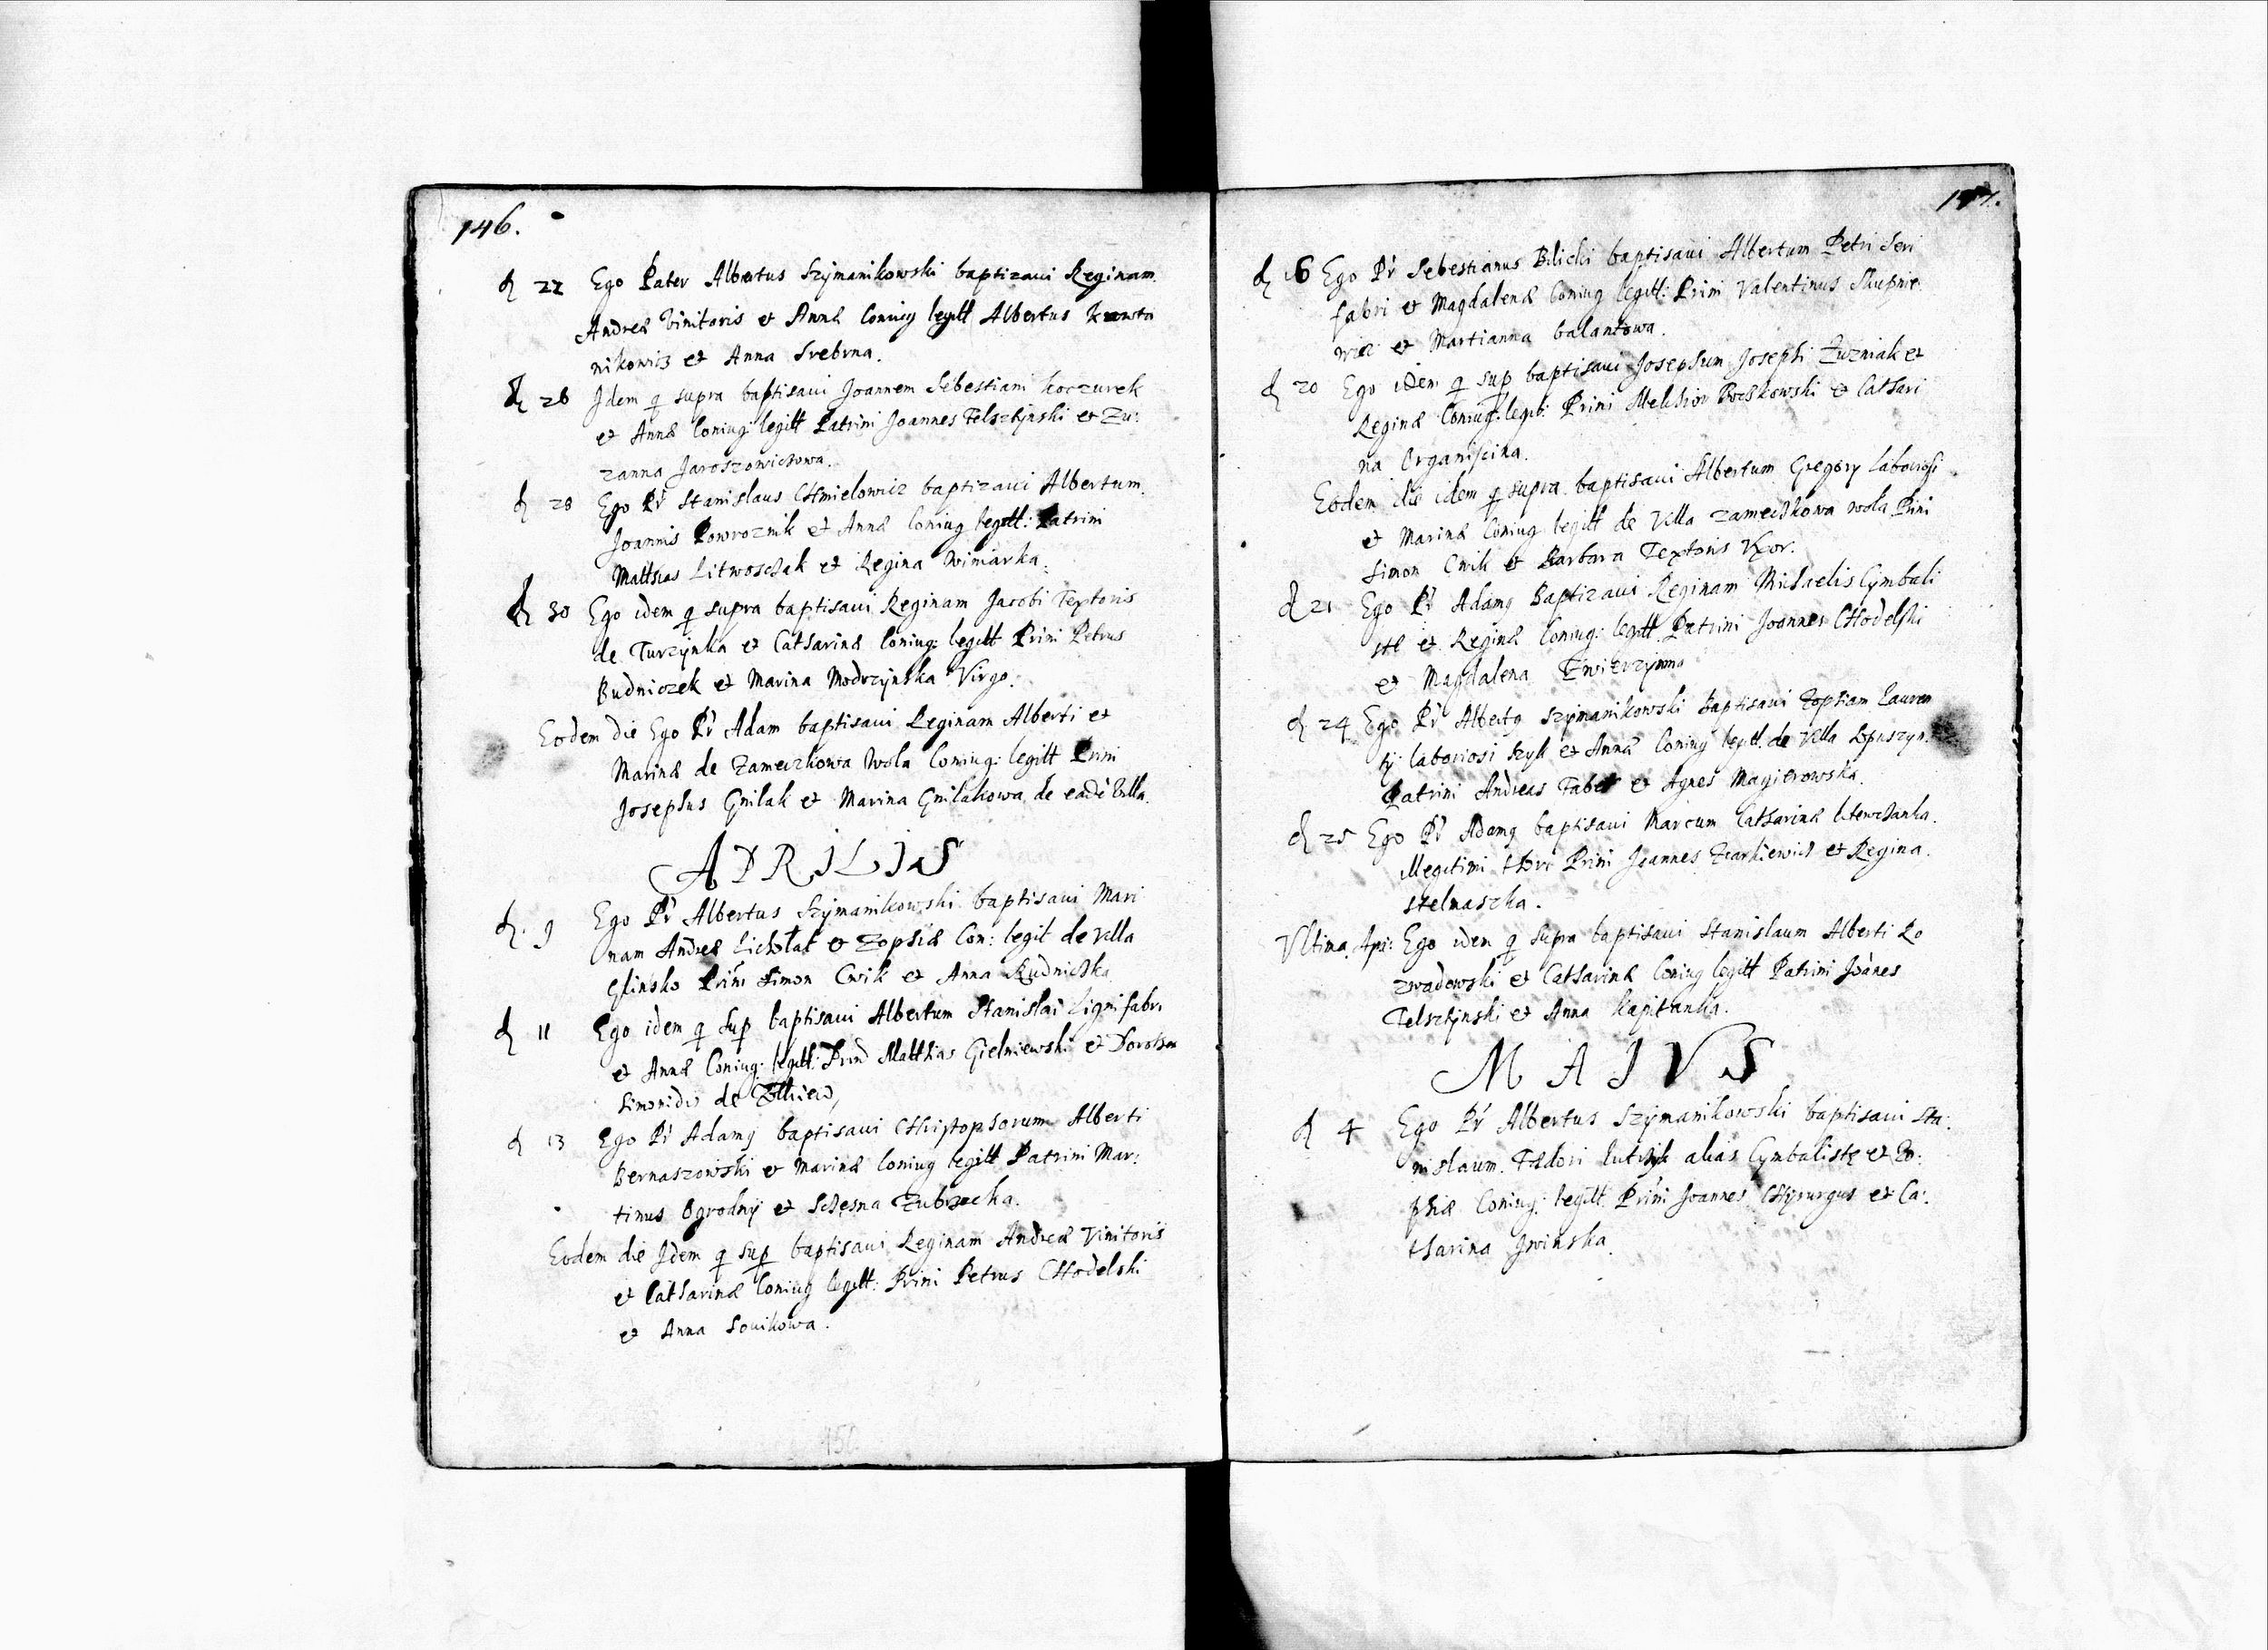 146.
d 22 Ego Pater Albertus Szÿmanikowski baptizaui Reginam
Andreæ Vinitoris et Annæ Coniug legitt Albertus
nikowicz et Anna Srebrna.
d 28 Jdem q supra baptisaui Joannem Sebestiani Koczurek
et Annæ Coniug: legitt Patrini Joannes Telsztÿnski et Zu:
zanna Jaroszowichowa.
d 28 Ego Pr Stanislaus Chmielowicz baptizaui Albertum
Joannis Powroznik et Annæ Coniug legitt: Patrini
Matthias Litwoschak et Regina Winiarka.
d 30 Ego idem q supra baptisaui Reginam Jacobi Textoris
de Turzÿnka et Catharinæ Coniug: legitt Prini Petrus
Budniczek et Marina Modrzÿnska Virgo.
Eodem die Ego Pr Adam baptisaui Reginam Alberti et
Marinæ de Zameczkowa Wola Coniug: legitt Prini
Josephus Gnilak et Marina Gnilakowa de eadē Villa.
APRILIS
d. 9 Ego Pr Albertus Szÿmanikowski baptisaui Mari
nam Andreæ et Zophiæ Con: legit de Villa
Glinsko Prini Simon Cwik et Anna Rudnichka
d 11 Ego idem q sup baptisaui Albertum Stanislai Lignifabri
et Annæ Coniug: legitt: Matthias Gielniewski et Dorothea
Simonidis de
d 13 Ego Pr Adamq baptisaui Christophorum Alberti
Bernaszowski et Marinæ Coniug legitt Patrini Mar:
tinus Ogrodnÿ et Schęsna Zubrzecka.
Eodem die Jdem q sup baptisaui Reginam Andreæ Vinitoris
et Catharinæ Coniug legitt: Prini Petrus Chodelski
et Anna Souikowa.
147.
d 16 Ego Pr Sebestianus Bilicki baptisaui Albertum Petri Seri
fabri et Magdalenæ Coniug legitt: Prini Valentinus Skupnie
wicz et Martianna balantowa.
d 20 Ego idem q sup baptisaui Josephum Josephi Zuzniak et
Reginæ Coniug: legit: Prini Melchior et Cathari
na Organiscina.
Eodem die idem q supra baptisaui Albertum Gregorÿ Laboriosi
et Marinæ Coniug legitt de Villa Zamechkowa wola Prini
Simon Cwik et Barbara Textoris Vxor.
d 21 Ego Pr Adamq Baptizaui Reginam Michaelis Cÿmbali
stæ et Reginæ Coniug: legitt Patrini Joannes Chodelski
et Magdalena
d 24 Ego Pr Albertq Szÿmanikowski baptisaui Zophiam Lauren
tÿ laboriosi Szyk et Annæ Coniug legitt. de Villa Lopuszyn:
Patrini Andreas Faber et Agnes Magierowska.
d 25 Ego Pr Adamq baptisaui Marcum Catharinæ
illegitimi thori Prini Joannes et Regina
stelmaszka.
Vltima Apr: Ego idem q supra baptisaui Stanislaum Alberti Ro
zwadowski et Catharinæ Coniug legitt Patrini Joānes
Telsztÿnski et Anna Kapitanka.
MAJVS
d 4 Ego Pr Albertus Szÿmanikowski baptisaui Sta:
nislaum. Fedori alias Cÿmbalistę et Zo:
phiæ Coniug: legitt Prini Joannes Chÿrurgus et Ca:
tharina Jwinska.